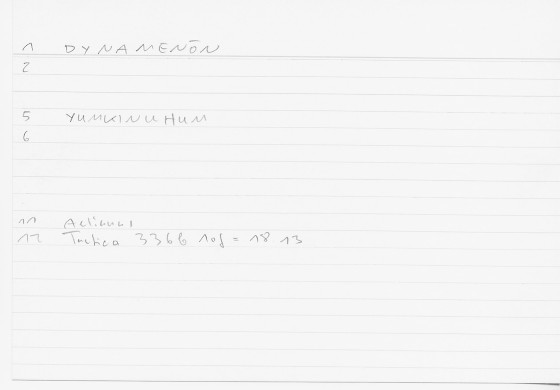 1 DYNAMENŌN
2
5 YUMKINUHUM
6
11 Aelianus
12 Tactica 336b 10f = 18 13